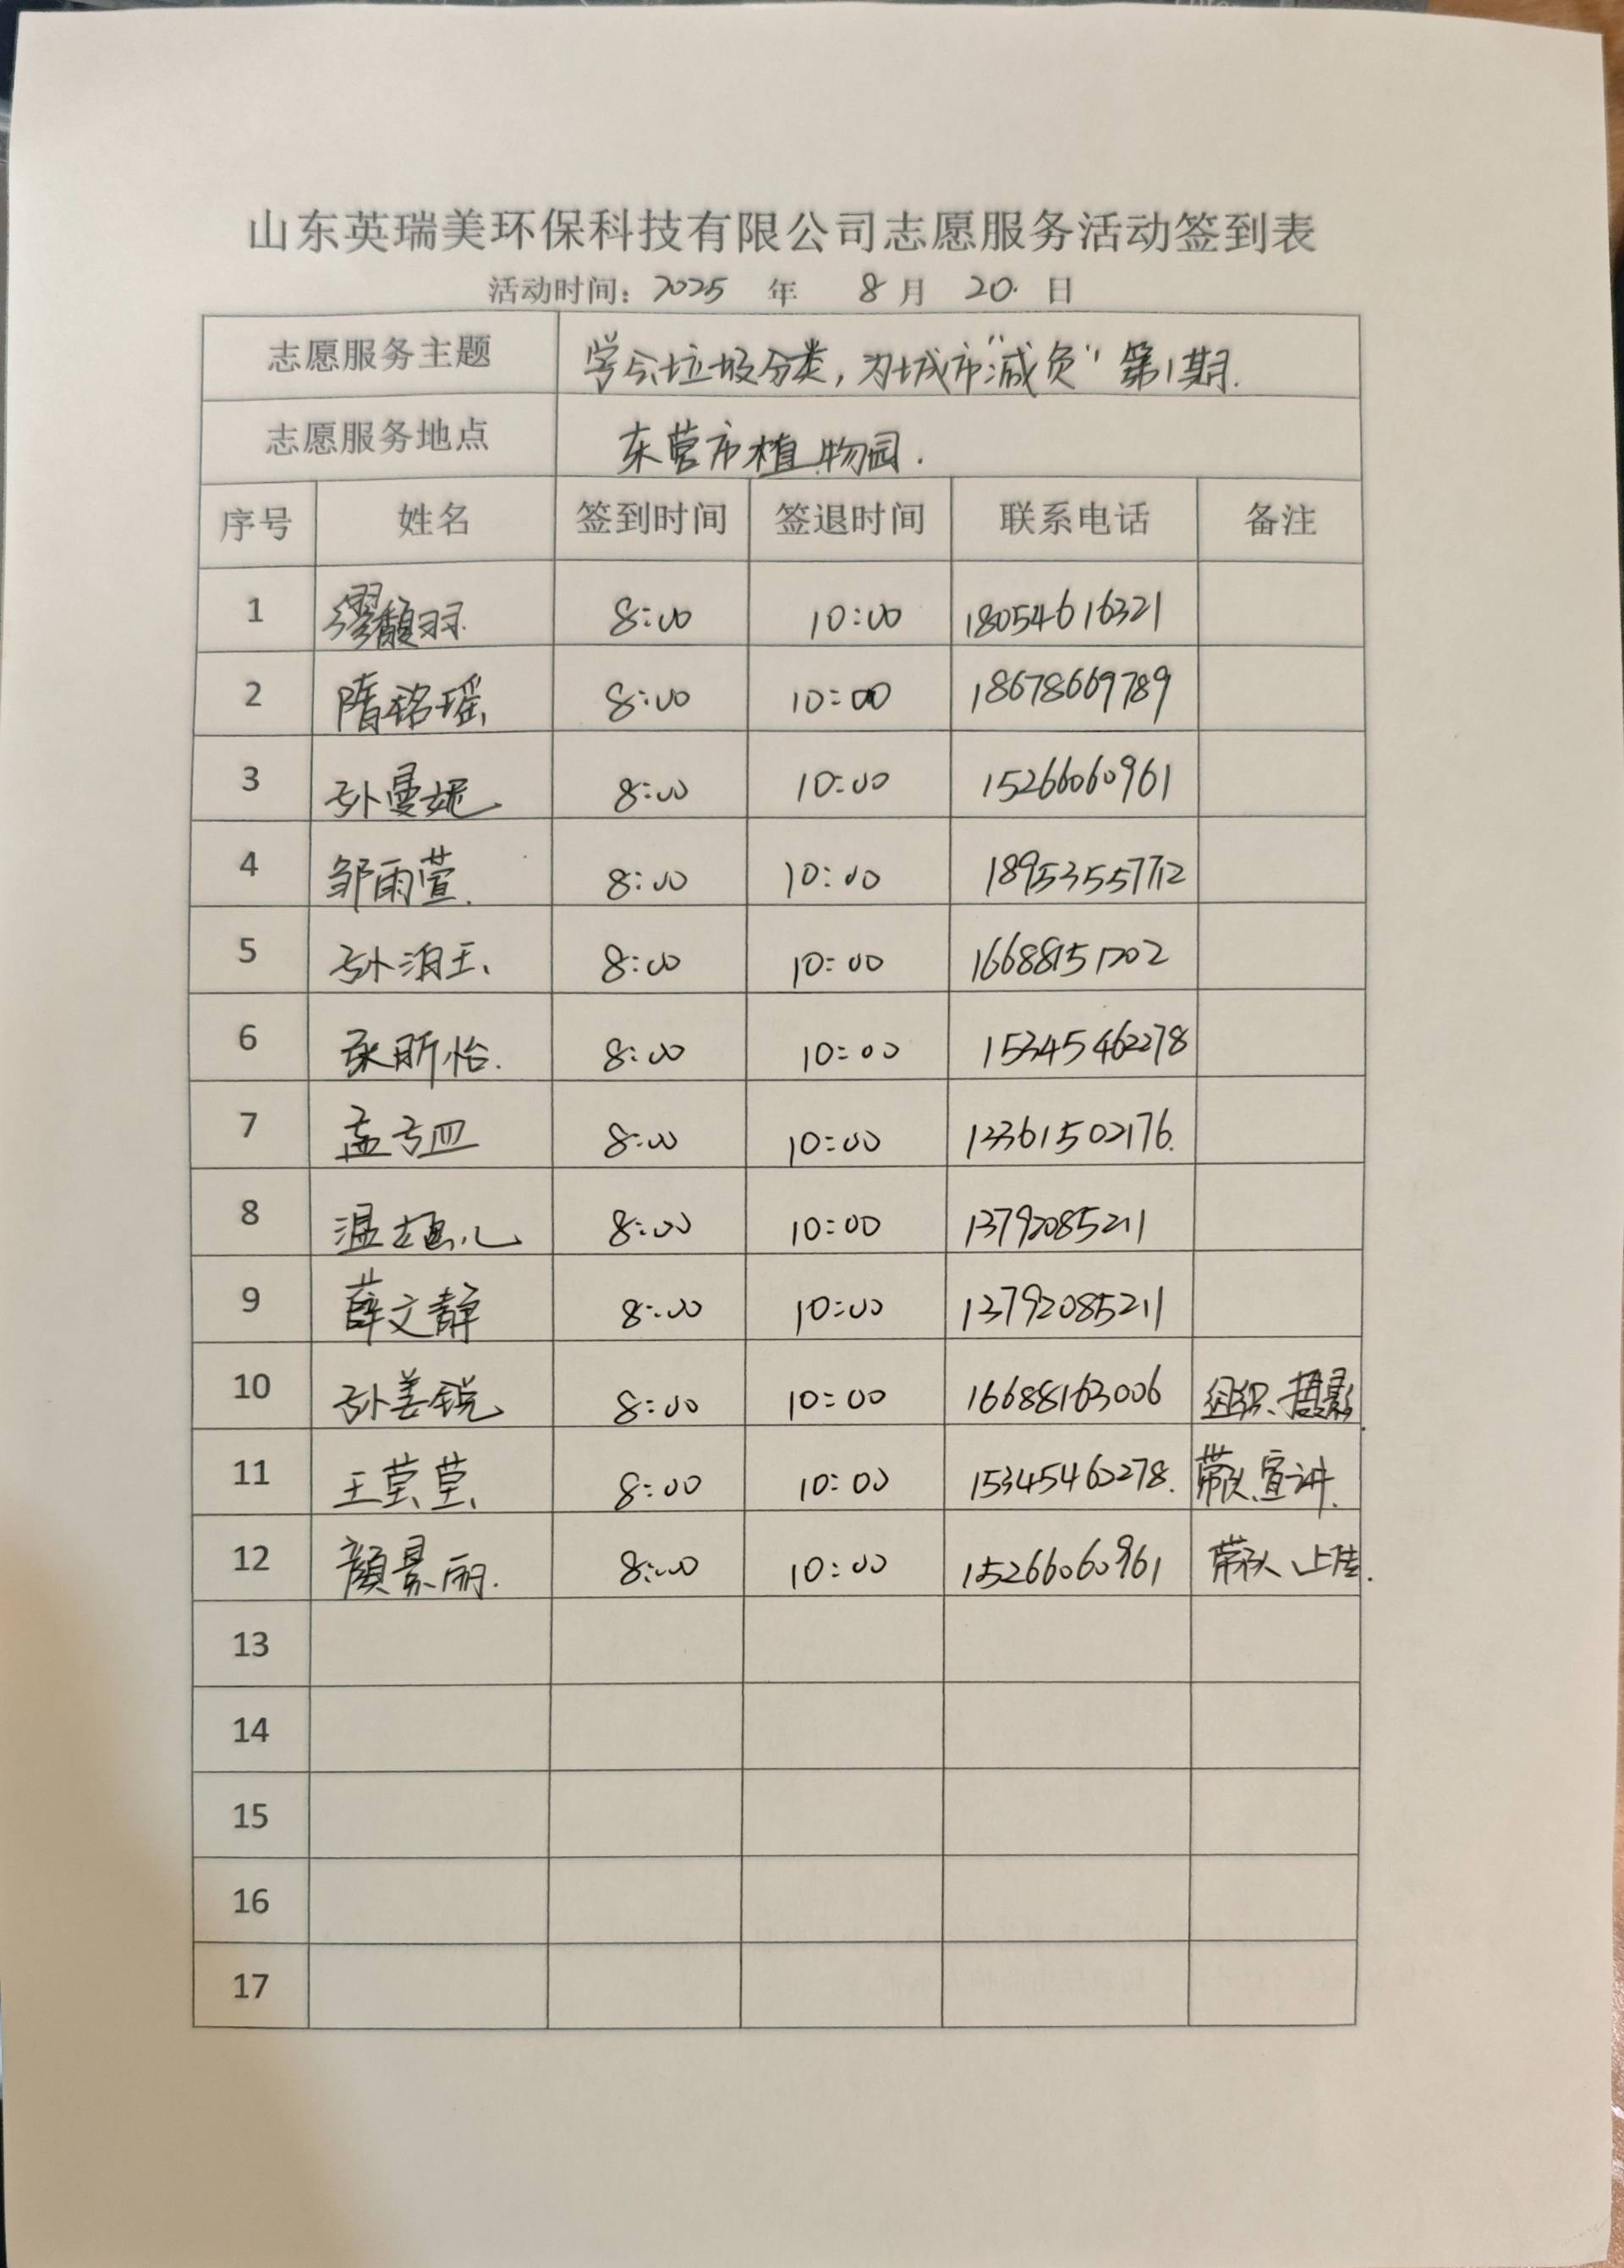 山东英瑞美环保科技有限公司志愿服务活动签到表
活动时间：2025 年 8 月 20 日
志愿服务主题 学会垃圾分类，为城市"减负"第1期.
志愿服务地点 东营市植物园.
序号 姓名 签到时间 签退时间 联系电话 备注
1 缪馥羽 8:00 10:00 18054616321
2 隋铭瑶 8:00 10:00 18678669789
3 孙曼妮 8:00 10:00 15266060961
4 邹雨萱 8:00 10:00 18953557712
5 8:00 10:00 16688151702
6 张昕怡 8:00 10:00 15345462278
7 8:00 10:00 13361502176
8 8:00 10:00 13792085211
9 薛文静 8:00 10:00 13792085211
10 孙姜锐 8:00 10:00 16688163006 组织、摄影
11 8:00 10:00 15345462278 带队、宣讲
12 颜景丽 8:00 10:00 15266060961 带队、上传
13
14
15
16
17